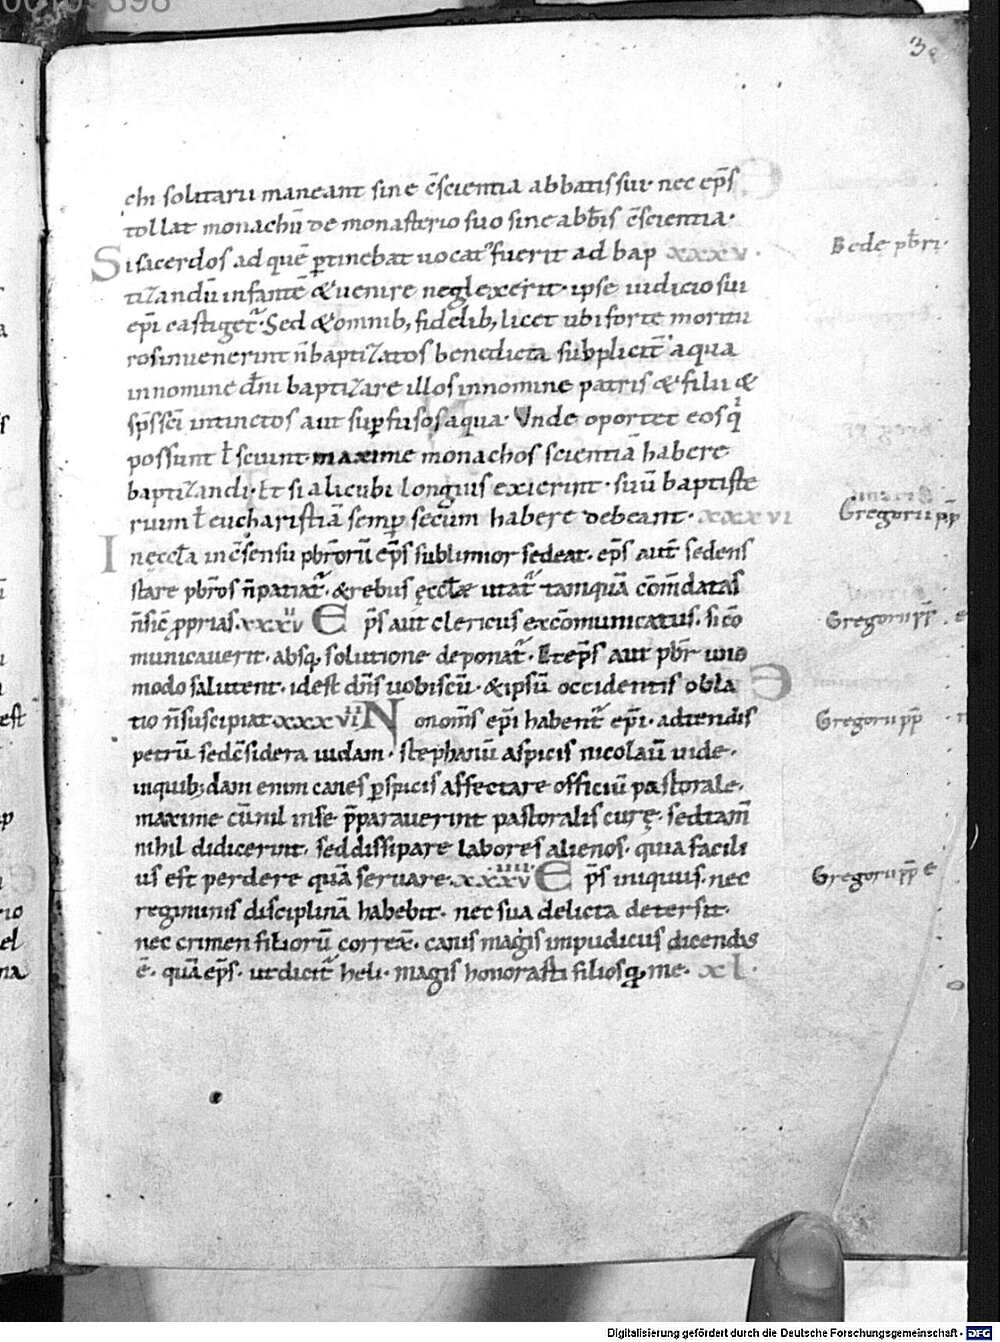 3
chi solitarii maneant sine c̄scientia abbatis sui· nec ep̄s
tollat monachū de monasterio suo sine abb̄is c̄scientia·
Si sacerdos ad quē ꝑtinebat uocat᾽ fuerit ad bap xxxv·
Bede pb̄ri·
tizandū infantē & uenire neglexerit· ipse iudicio sui
ep̄i castiget᷑· Sed & omnib; fidelib; licet ubi forte moritu
ros inuenerint n̄ baptizatos benedicta subplicit᷑ aqua
in nomine dn̄i baptizare illos in nomine patris & filii &
sp̄s sc̄i intinctos aut suꝑfusos aqua· Vnde oportet eos qͥ
possunt ł sciunt maxime monachos scientiā habere
baptizandi· Et si alicubi longius exierint· suū baptiste
rium ł eucharistiā semꝑ secum habere debeant· xxxvi
Gregorii pp̄
In eccła in c̄sensu pb̄rorū ep̄s sublimior sedeat· ep̄s aut̄ sedens
stare pb̄ros n̄ patiat᷑· & rebus ęccłæ utat᷑ tamquā cōm̄datas
n̄ sic̄ ꝓprias· xxxvii Ep̄s aut clericus excōmunicatus· si cō
Gregorii pp̄ e
municauerit· absq; solutione deponat᷑· Et ep̄s aut pb̄r uno
modo salutent· id est dn̄s uobiscū· & ipsū occidentis obla
tio n̄ suscipiat xxxviii Non om̄s ep̄i habent᷑ ep̄i· adtendis
Gregorii pp̄ n
petrū sed c̄sidera iudam· stephanū aspicis nicolaū uide·
inquib;dam enim canes ꝑspicis affectare officiū pastorale·
maxime cū nil in se p̄parauerint pastoralis curę· sed tam̄
nihil didicerint· sed dissipare labores alienos· quia facili
us est perdere quā seruare· xxxviiii Ep̄s iniquus· nec
Gregorii pp̄ e
regiminis disciplinā habebit· nec sua delicta detersit·
nec crimen filiorū correx̄· canis magis impudicus dicendus
ē· quā ep̄s· ut dicit᷑ heli· magis honorasti filios q; me· xl·
Digitalisierung gefördert durch die Deutsche Forschungsgemeinschaft - DFG